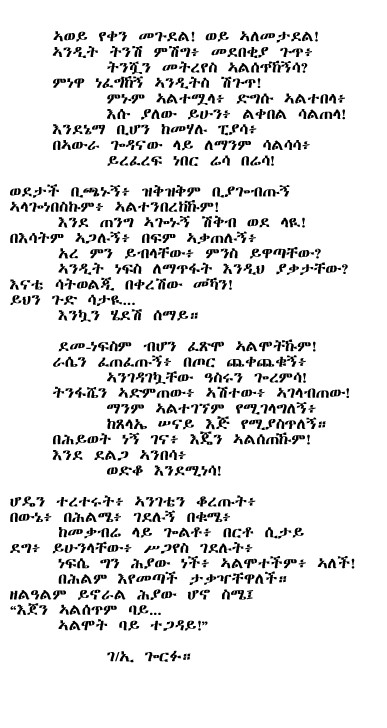 ኣወይ የቀን መጉደል! ወይ ኣለመታደል!
ኣንዲት ትንሽ ምሽግ፥ መደበቂያ ጉጥ፥
ትንሿን መትረየስ ኣልሰጥኸኝሳ?
ምነዋ ነፈግኸኝ ኣንዲትስ ሽጉጥ!
ምኑም ኣልተሟላ፥ ድግሱ ኣልተበላ፥
እሱ ያለው ይሁን፥ ልቀበል ሳልጠላ!
እንደኔማ ቢሆን ከመሃሉ ፒያሳ፥
በኣውራ ጎዳናው ላይ ለማንም ሳልሳሳ፥
ይረፈረፍ ነበር ሬሳ በሬሳ!
ወደታች ቢጫኑኝ፥ ዝቅዝቅም ቢያጐብጡኝ
ኣላጐነበስኩም፥ ኣልተንበረከክኹም!
እንደ ጠንግ ኣጐኑኝ ሽቅብ ወደ ላዪ!
በእሳትም ኣጋሉኝ፥ በፍም ኣቃጠሉኝ፥
እረ ምን ይብላቸው፥ ምንስ ይዋጣቸው?
ኣንዲት ነፍስ ለማጥፋት እንዲህ ያቃታቸው?
እናቴ ሳትወልጂ በቀረሽው መኻን!
ይህን ጉድ ሳታዪ...
እንኳን ሄደሽ ሰማይ።
ደመ-ነፍስም ብሆን ፈጽሞ ኣልሞትኹም!
ራሴን ፈጠፈጡኝ፥ በጦር ጨቀጨቁኝ፥
ኣንገዳገኳቸው ዓስሩን ጐረምሳ!
ትንፋሼን ኣድምጠው፥ ኣሽተው፥ ኣገላብጠው!
ማንም ኣልተገኘም የሚገላግለኝ፥
ከጸላኤ ሠናይ እጅ የሚያስጥለኝ።
በሕይወት ነኝ ገና፥ እጄን ኣልሰጠኹም!
እንደ ደልጋ ኣንበሳ፥
ወድቆ እንደሚነሳ!
ሆዴን ተረተሩት፥ ኣንገቴን ቆረጡት፥
በውኔ፥ በሕልሜ፥ ገደሉኝ በቁሜ፥
ከመቃብሬ ላይ ጐልቶ፥ በርቶ ሲታይ
ደግ፥ ይሁንላቸው፥ ሥጋየስ ገደሉት፥
ነፍሴ ግን ሕያው ነች፥ ኣልሞተችም፥ ኣለች!
በሕልም እየመጣች ታቃዣቸዋለች።
ዘልዓልም ይኖራል ሕያው ሆኖ ስሜ፤
“እጀን ኣልሰጥም ባይ...
ኣልሞት ባይ ተጋዳይ!”
ገ/ኢ ጐርፉ።